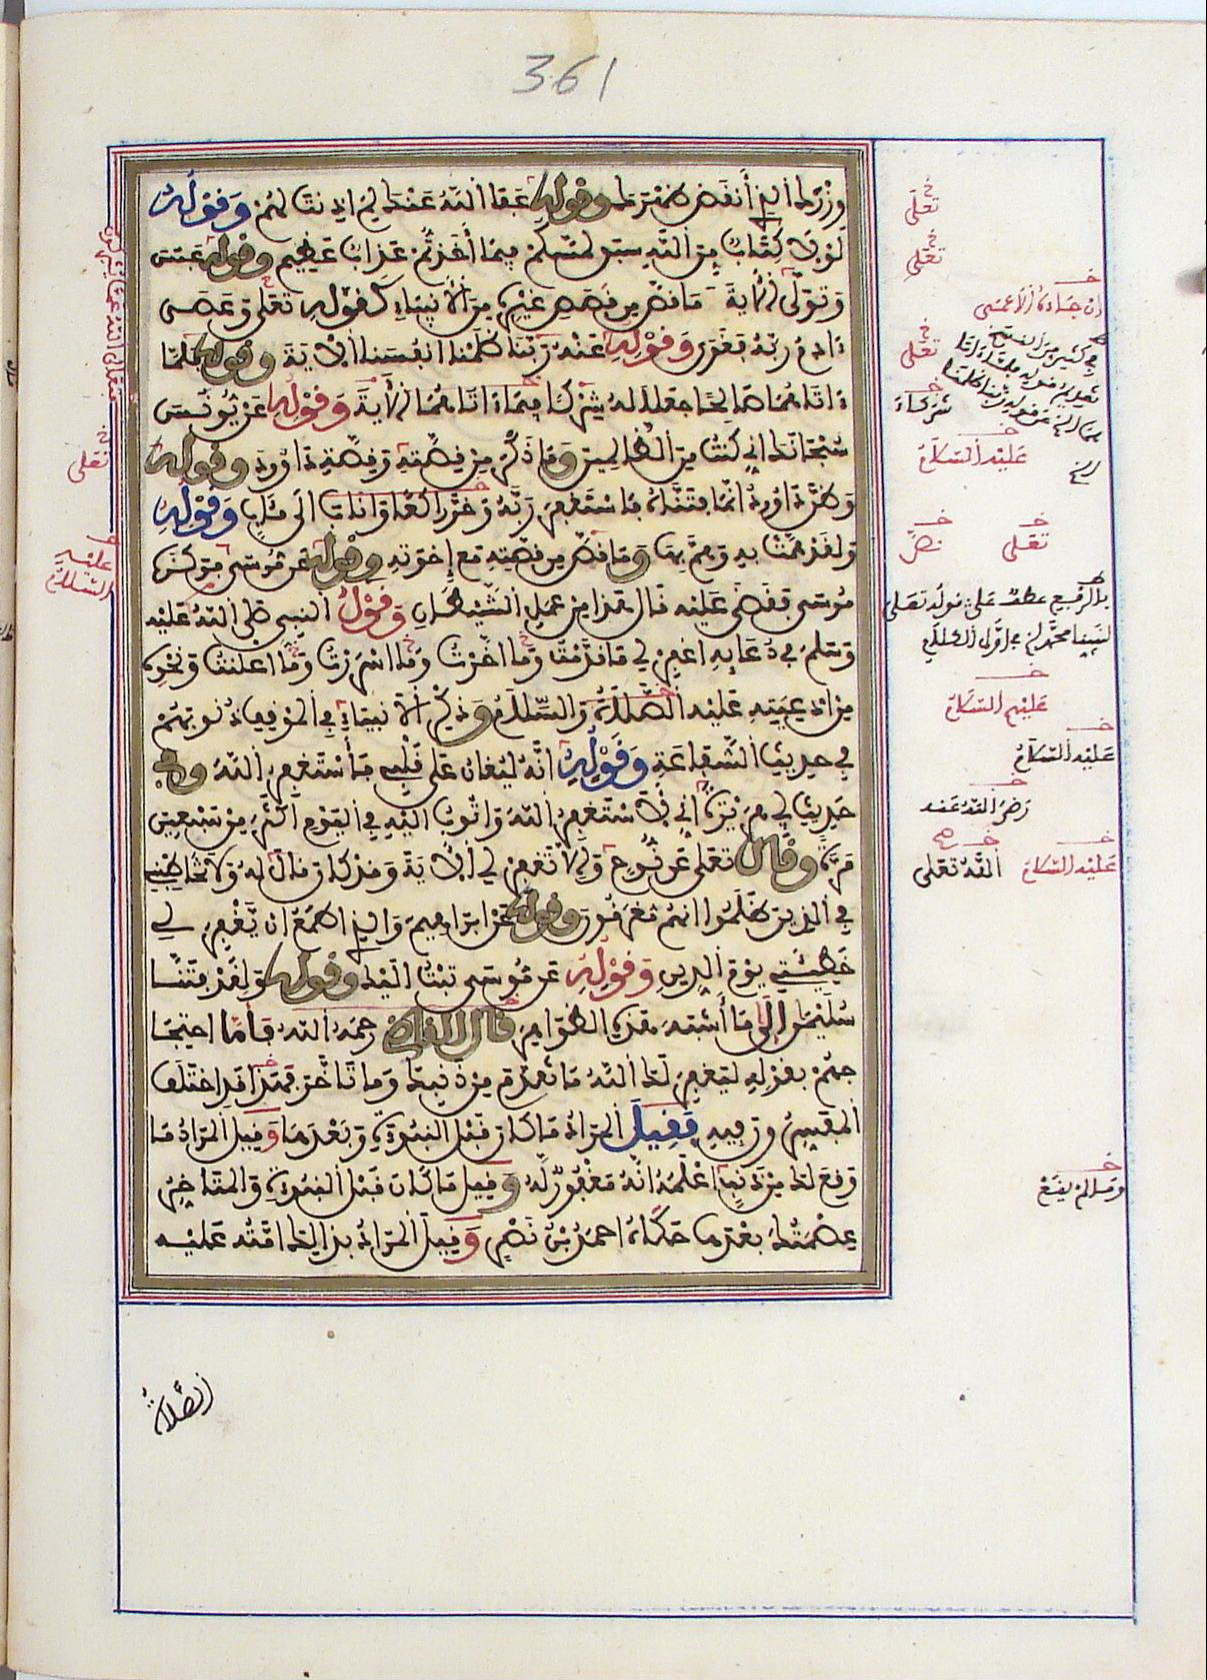 361
وزرك الذي أنقض ظهرك وقوله عفا الله عنك لم اذنت لهم وقوله
لولا كتاب من الله سبق لمسكم فيما أخذتم عذاب عظيم وقوله عبس
وتولى الاية وما قص من قصص غيره من الانبياء كقوله تعلى وعصى
ءادم ربه فغوى وقوله عنه ربنا ظلمنا انفسنا الاية وقوله فلما
ءاتاهما صالحا جعلا له شركا فيما ءاتاهما الاية وقوله عن يونس
سبحانك اني كنت من الظالمين وما ذكر من قصته وقصة داوود وقوله
وظن داوود انما فتناه فاستغفر ربه وخر راكعا واناب الى مئاب وقوله
ولقد همت به وهم بها وما قص من قصته مع إخوته وقوله عن موسى فوكزه
موسى فقضى عليه قال هذا من عمل الشيطان وقول النبي صلى الله عليه
وسلم في دعايه اغفر لي ما قدمت وما اخرت وما اسررت وما اعلنت ونحوه
من ادعيته عليه الصلاة والسلام وذكر الانبياء في الموقف ذنوبهم
في حديث الشفاعة وقوله انه ليغان على قلبي فأستغفر الله وفي
حديث ابي هريرة اني لاستغفر الله واتوب اليه في اليوم اكثر من سبعين
مرة وقال تعلى عن نوح والا تغفر لي الاية وقد كان قال له ولا تخاطبني
في الذين ظلموا انهم مغرقون وقوله عن ابراهيم والذي اطمع ان يغفر لي
خطيئتي يوم الدين وقوله عن موسى تبت اليك وقوله ولقد فتنا
سليمن الى ما أشبه هذه الظواهر قال القاضي رحمه الله فأما احتجا
جهم بقوله ليغفر لك الله ما تقدم من ذنبك وما تاخر فهذا قد اختلف
المفسرون فيه فقيل المراد ما كان قبل النبوة وبعدها وقيل المراد ما
وقع لك من ذنب اعلمه انه مغفور له وقيل ما كان قبل النبوة والمتاخر
عصمتك بعدها حكاه احمد بن نصر وقيل المراد بذالك امته عليه
الصلاة
تعلى
تعلى
ان جاءه الاعمى
تعلى
شركاء
عليه السلام
تعلى
نص
بالرفع عطف على قوله تعلى
عليهم السلام
عليه السلام
رضى الله عنه
عليه السلام
الله تعلى
وما لم يقع
تعلى
عليه السلام